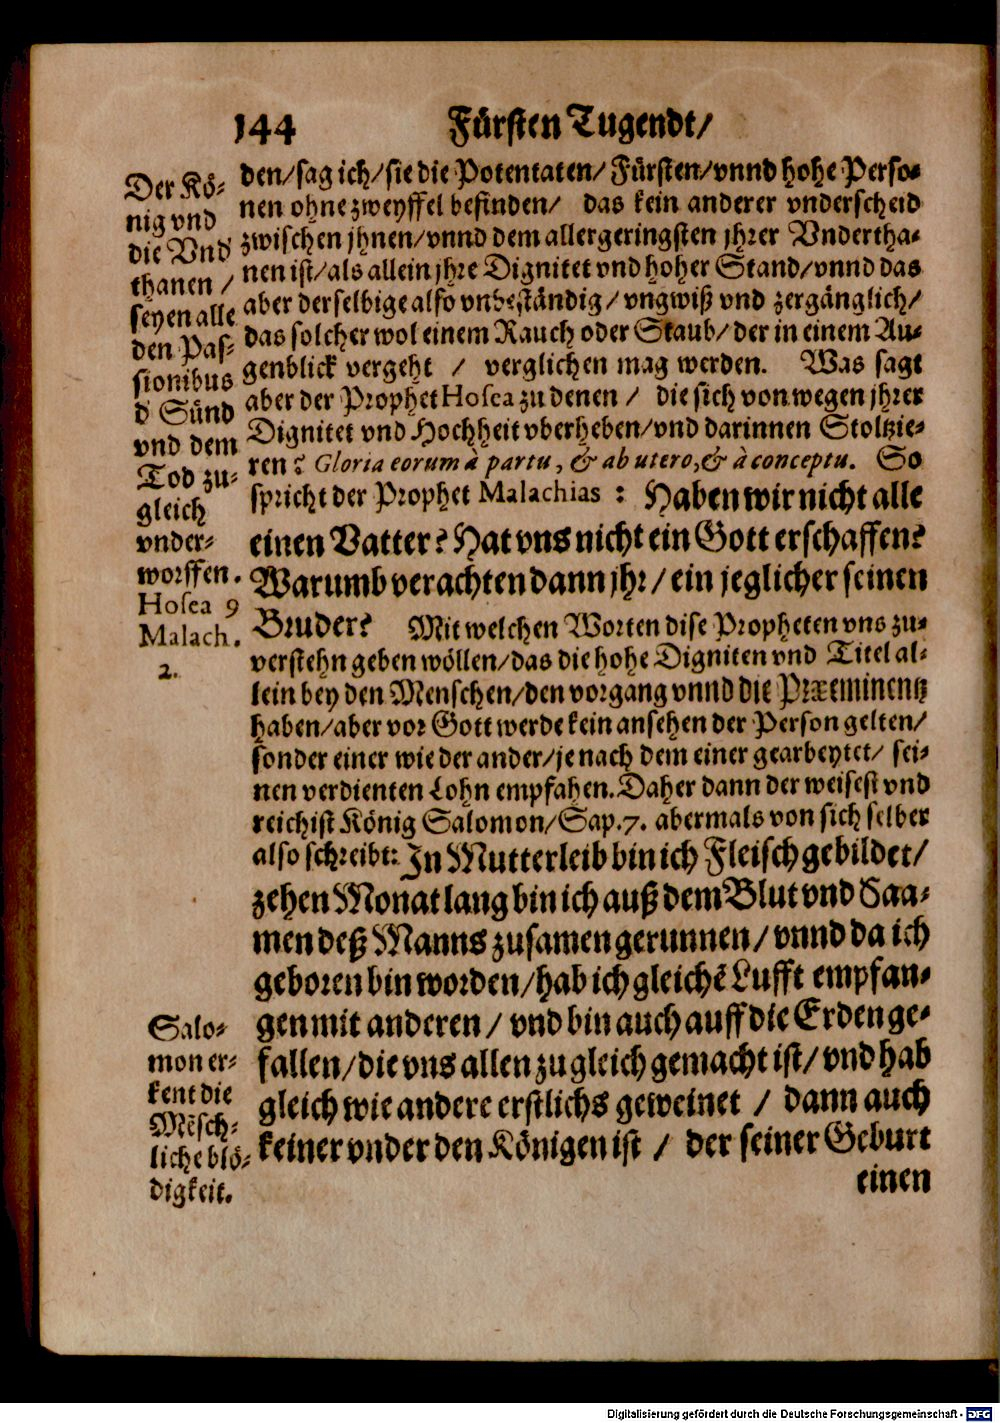 144 Fürsten Tugendt/
Der Kö-
nig vnd
die Vnd
thanen /
seyen alle
den Pas-
sionibus
d Sünd
vnd dem
Tod zu-
gleich
vnder-
worffen.
Hosea 9
Malach.
2.
den/sag ich/sie die Potentaten/Fürsten/vnnd hohe Perso-
nen ohne zweyffel befinden/ das kein anderer vnderscheid
zwischen jhnen/vnnd dem allergeringsten jhrer Vndertha-
nen ist/als allein jhre Dignitet vnd hoher Stand/vnnd das
aber derselbige also vnbeständig/vngwiß vnd zergänglich/
das solcher wol einem Rauch oder Staub/der in einem Au-
genblick vergeht / verglichen mag werden. Was sagt
aber der Prophet Hosea zu denen / die sich von wegen jhrer
Dignitet vnd Hochheit vberheben/vnd darinnen Stoltzie-
ren? Gloria eorum à partu, & ab utero, & à conceptu. So
spricht der Prophet Malachias : Haben wir nicht alle
einen Vatter? Hat vns nicht ein Gott erschaffen?
Warumb verachten dann jhr/ein jeglicher seinen
Bruder? Mit welchen Worten dise Propheten vns zu-
verstehn geben wöllen/das die hohe Digniten vnd Titel al-
lein bey den Menschen/den vorgang vnnd die Præeminentz
haben/aber vor Gott werde kein ansehen der Person gelten/
sonder einer wie der ander/je nach dem einer gearbeytet/ sei-
nen verdienten Lohn empfahen. Daher dann der weisest vnd
reichist König Salomon/Sap.7. abermals von sich selber
also schreibt: In Mutterleib bin ich Fleisch gebildet/
zehen Monat lang bin ich auß dem Blut vnd Saa-
men deß Manns zusamen gerunnen/vnnd da ich
geboren bin worden/hab ich gleichē Lufft empfan-
gen mit anderen/vnd bin auch auff die Erden ge-
fallen/die vns allen zugleich gemacht ist/vnd hab
gleich wie andere erstlichs geweinet / dann auch
keiner vnder den Königen ist / der seiner Geburt
Salo-
mon er-
kent die
Mēsch-
liche blö-
digkeit.
einen
Digitalisierung gefördert durch die Deutsche Forschungsgemeinschaft - DFG